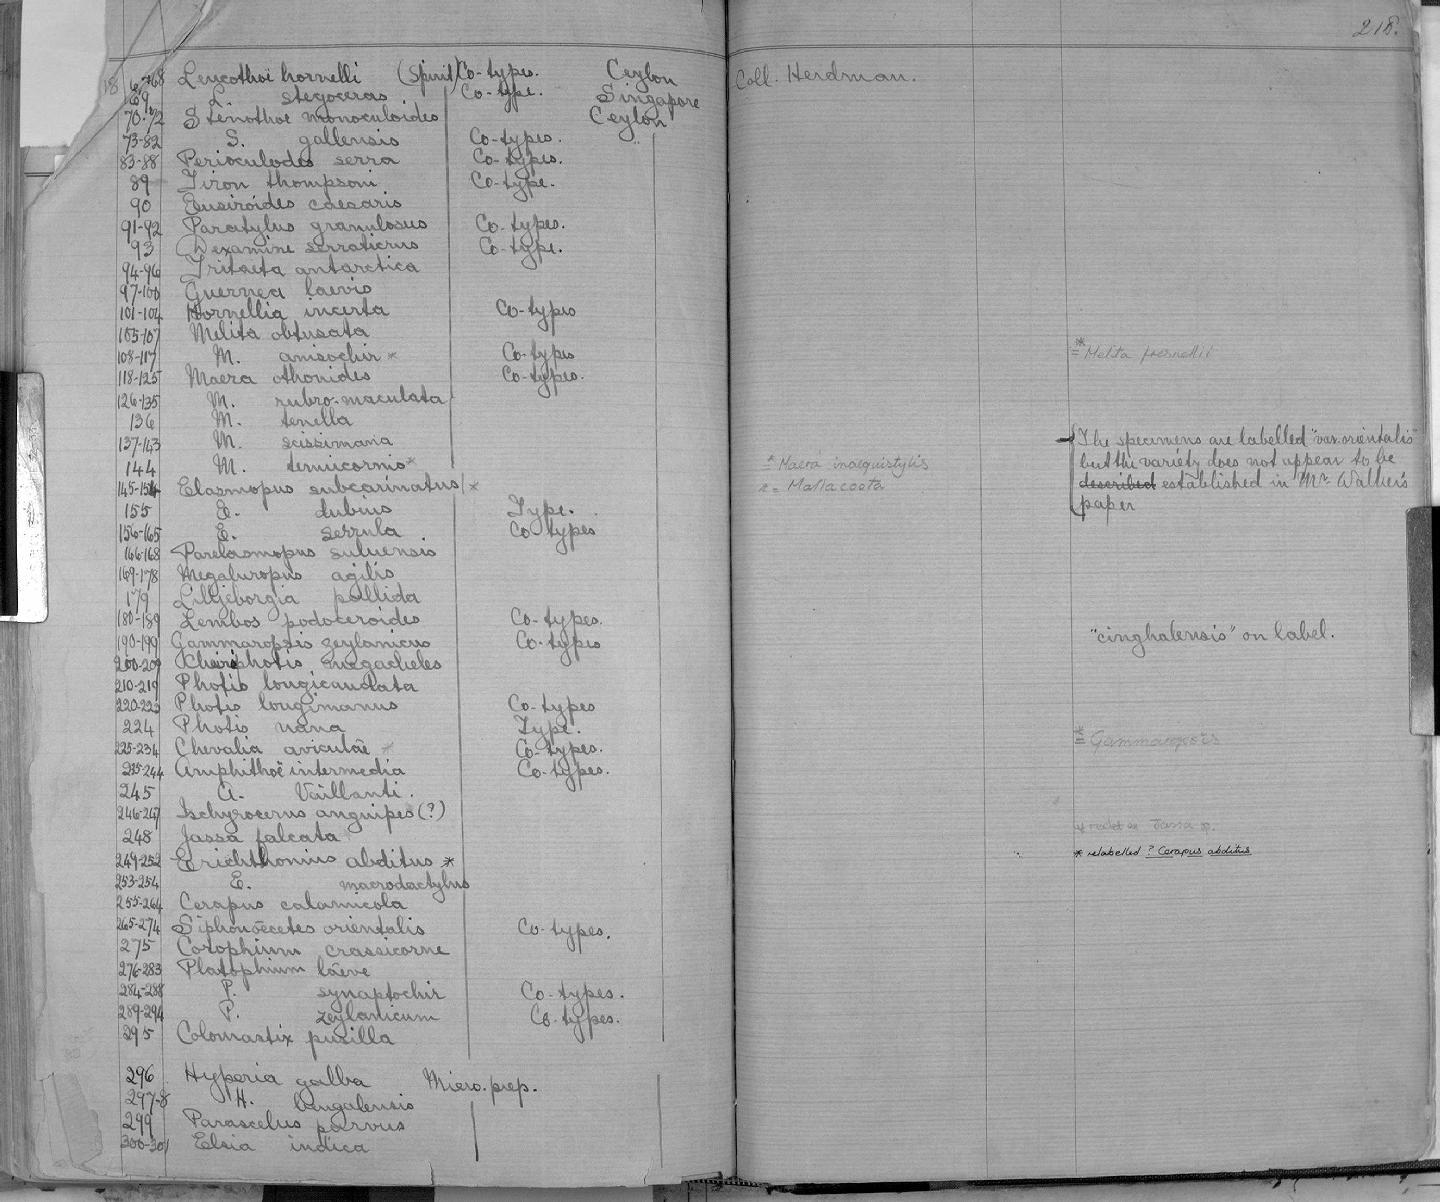 218.
18 67-68 Leucothoë hornelli (Spirit) Co-types. Ceylon Coll. Herdman.
69 L. stegoceras Co-type. Singapore
70-72 Stenothoë monoculoides Ceylon
73-82 S. gallensis Co-types. "
83-88 Perioculodes serra Co-types.
89 Tiron thompsoni Co-type.
90 Eusiroides caesaris
91-92 Paratylus granulosus Co-types.
93 Dexamine serraticrus Co-type.
94-96 Tritaeta antarctica
97-100 Guernea laevis
101-104 Hornellia incerta Co-types
105-107 Melita obtusata
108-117 M. anisochir * Co-types * = Melita fresnelii
118-125 Maera othonides Co-types.
126-135 M. rubro-maculata
136 M. tenella
137-143 M. scissimana The specimens are labelled "var. orientalis"
144 M. tenuicornis * * = Maera inaequistylis but the variety does not appear to be
145-154 Elasmopus subcarinatus * * = Mallacoota described established in Mr. Walker's
155 E. dubius Type. paper
156-165 E. serrula Co-types
166-168 Parelasmopus suluensis
169-178 Megaluropus agilis
179 Lilljeborgia pallida
180-189 Lembos podoceroides Co-types.
190-199 Gammaropsis zeylanicus Co-types "cinghalensis" on label.
200-209 Cheiriphotis megacheles
210-219 Photis longicaudata
220-223 Photis longimanus Co-types
224 Photis nana Type.
225-234 Chevalia aviculae * Co-types. * = Gammaropsis
235-244 Amphithoë intermedia Co-types.
245 A. Vaillanti.
246-247 Ischyrocerus anguipes (?)
248 Jassa falcata Jassa sp.
249-252 Erichthonius abditus * * relabelled ? Cerapus abditus
253-254 E. macrodactylus
255-264 Cerapus calamicola
265-274 Siphonoecetes orientalis Co-types.
275 Corophium crassicorne
276-283 Platophium laeve
284-288 P. synaptochir Co-types.
289-294 P. zeylanicum Co-types.
295 Colomastix pusilla
296 Hyperia galba Micro. prep.
297-8 H. bengalensis
299 Parascelus parvus
300-301 Elsia indica